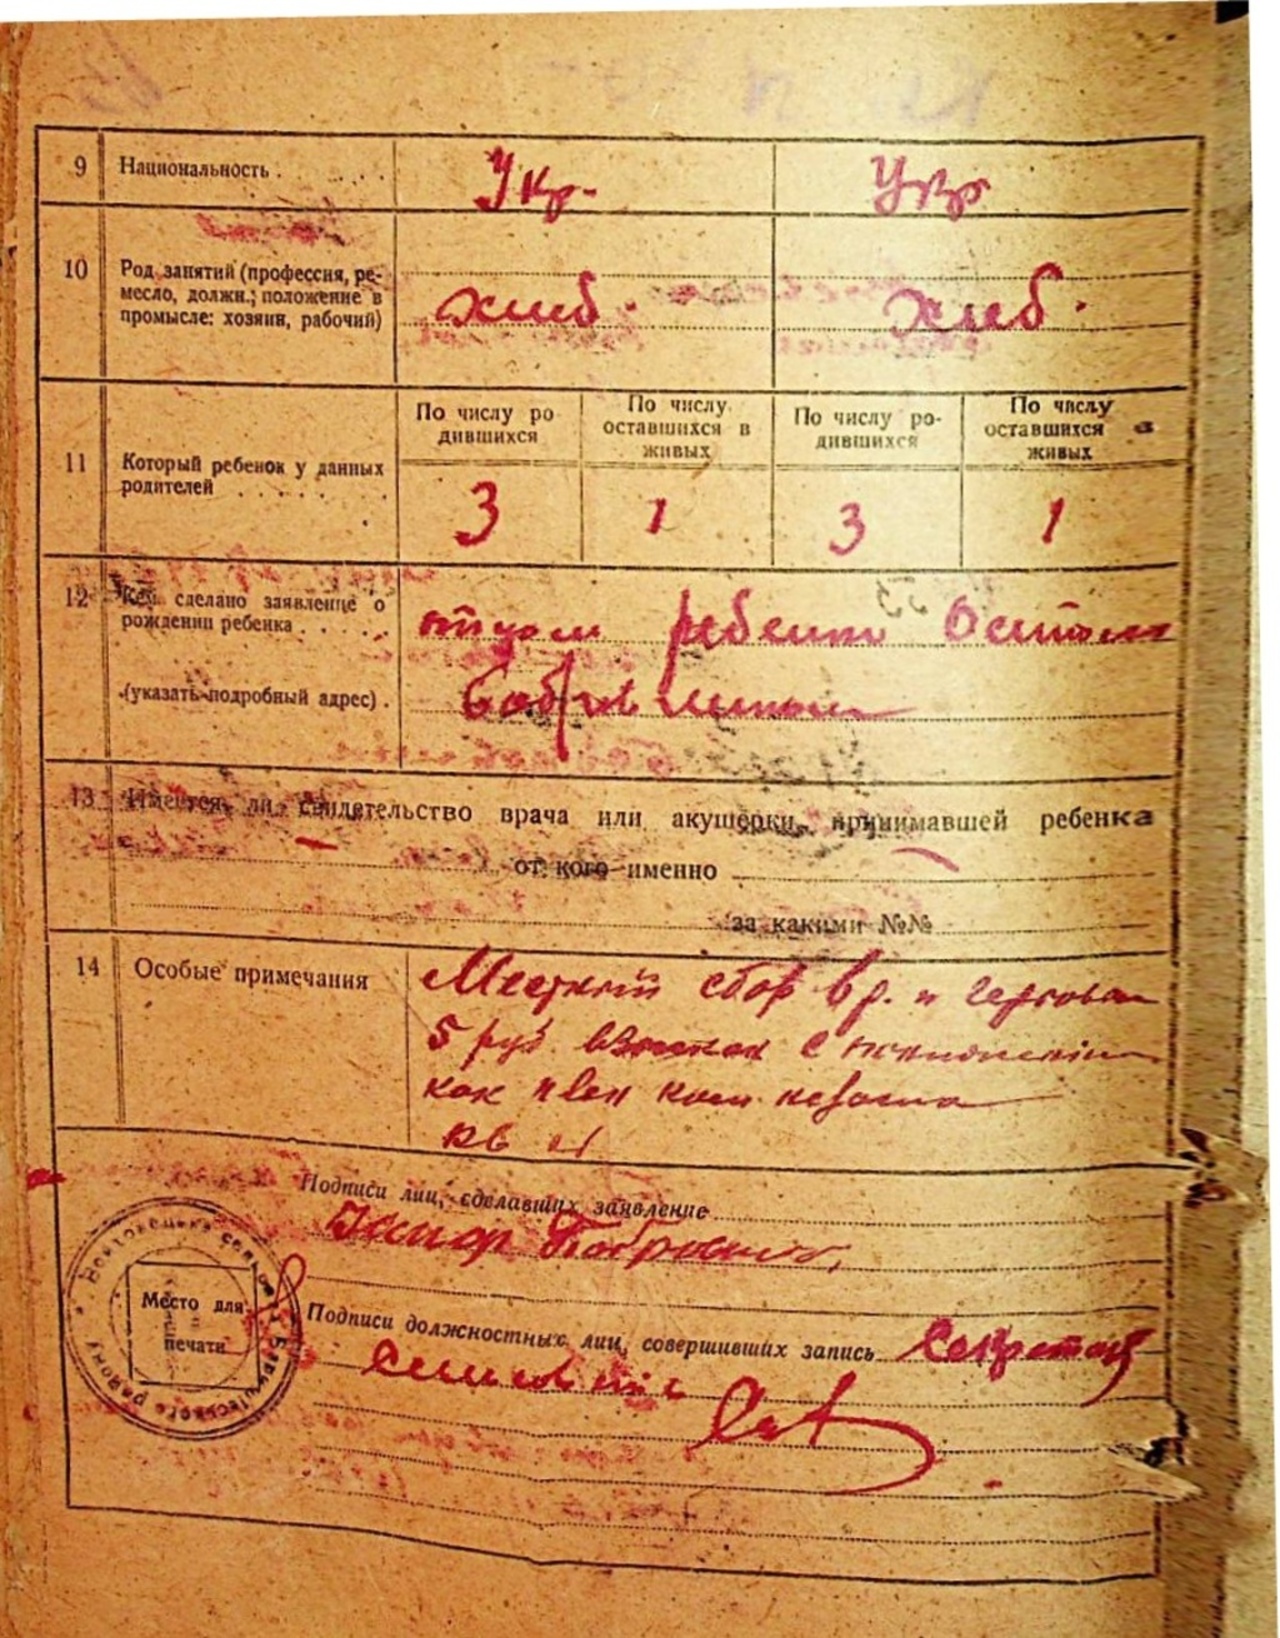 9 Национальность . . . . . Укр- Укр
10 Род занятий (профессия, ре-
месло, должн.; положение в
промысле: хозяин, рабочий)
хлеб. хлеб.
По числу ро
дившихся
По числу
оставшихся в
живых
По числу ро-
дившихся
По числу
оставшихся в
живых
11 Который ребенок у данных
родителей . . . . . .
3 1 3 1
12 Кем сделано заявление о
рождении ребенка . . . . .
отцом ребенка
(указать подробный адрес) .
13 Имеется ли свидетельство врача или акушерки, принимавшей ребенка
от кого именно
за какими №№
14 Особые примечания
Местный сбор в р. и
5 руб
как член
кв
Подписи лиц, сделавших заявление
Место для
печати
Подписи должностных лиц, совершивших запись Секретарь
сельсовета
району